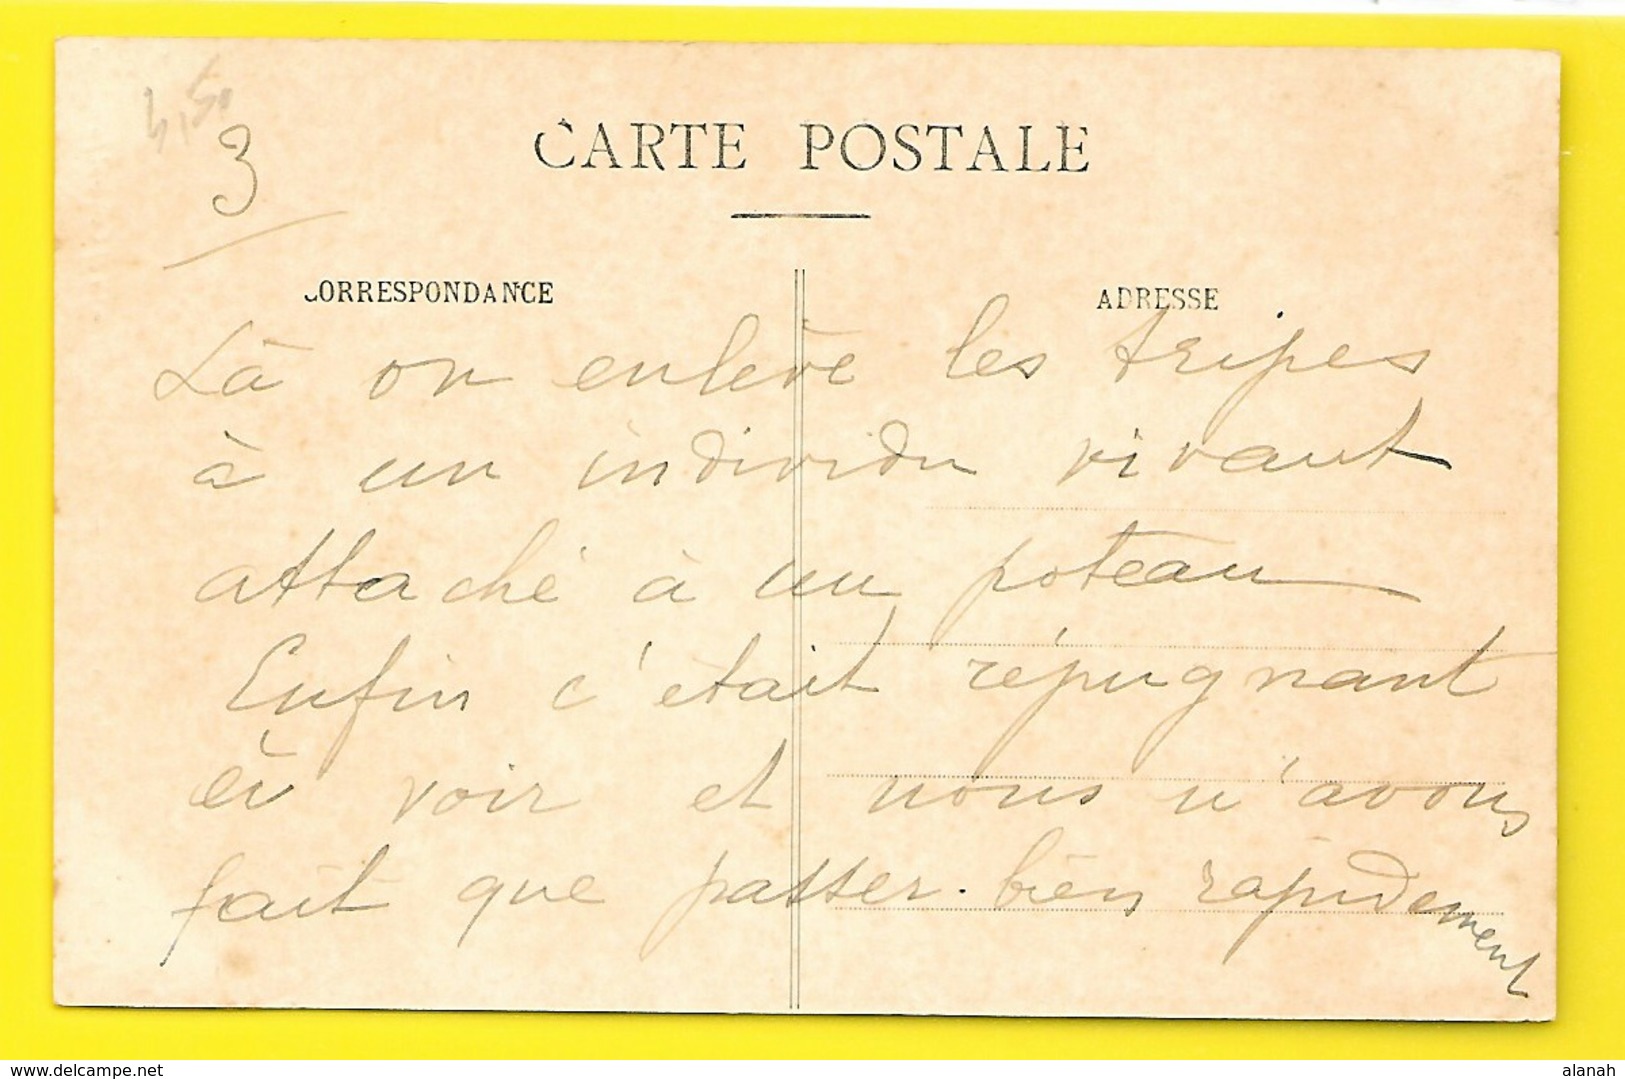 4,50
3
CARTE POSTALE
CORRESPONDANCE
ADRESSE
Là on enlève les tripes
à un individu vivant
attaché à un poteau
Enfin c'était répugnant
à voir et nous n'avons
fait que passer bien rapidement
www.delcampe.net
alanah